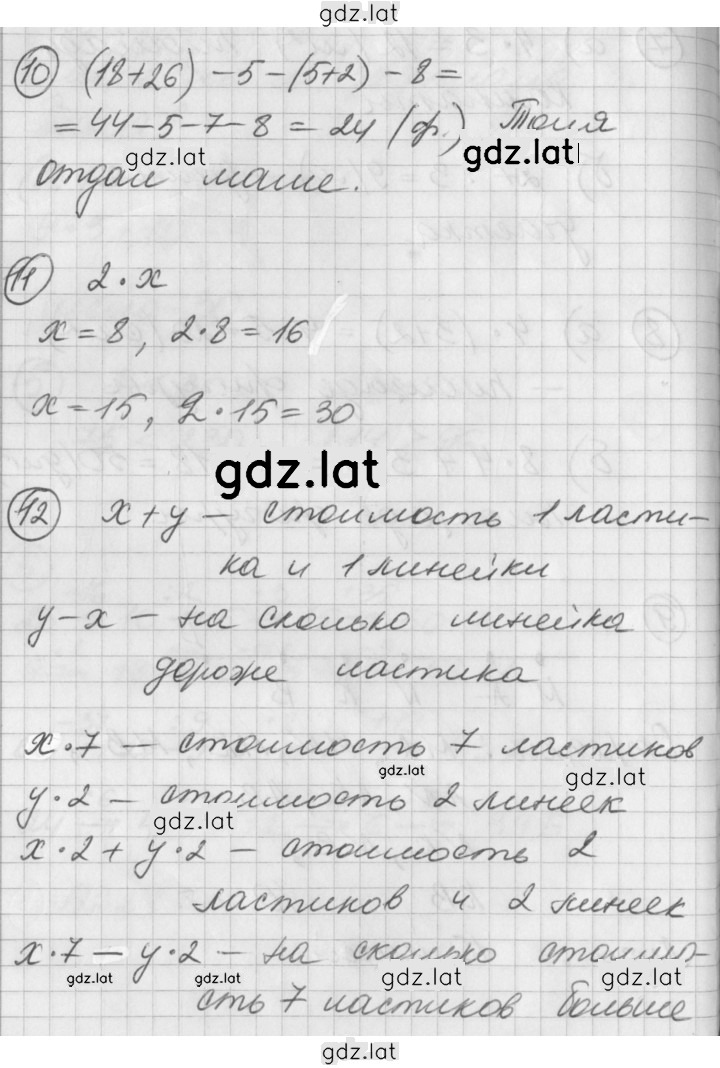 gdz.lat
10 (18+26) - 5 - (5+2) - 8 =
= 44 - 5 - 7 - 8 = 24 (ф.) Толя
gdz.lat
gdz.lat
отдал маше.
11 2·x
x = 8, 2·8 = 16
x = 15, 2·15 = 30
gdz.lat
12 x + y — стоимость 1 ласти-
ка и 1 линейки
y - x — на сколько линейка
дороже ластика
x·7 — стоимость 7 ластиков
gdz.lat
gdz.lat
y·2 — стоимость 2 линеек
gdz.lat
x·2 + y·2 — стоимость 2
ластиков и 2 линеек
x·7 — y·2 — на сколько стоимо-
gdz.lat gdz.lat gdz.lat gdz.lat
сть 7 ластиков больше
gdz.lat